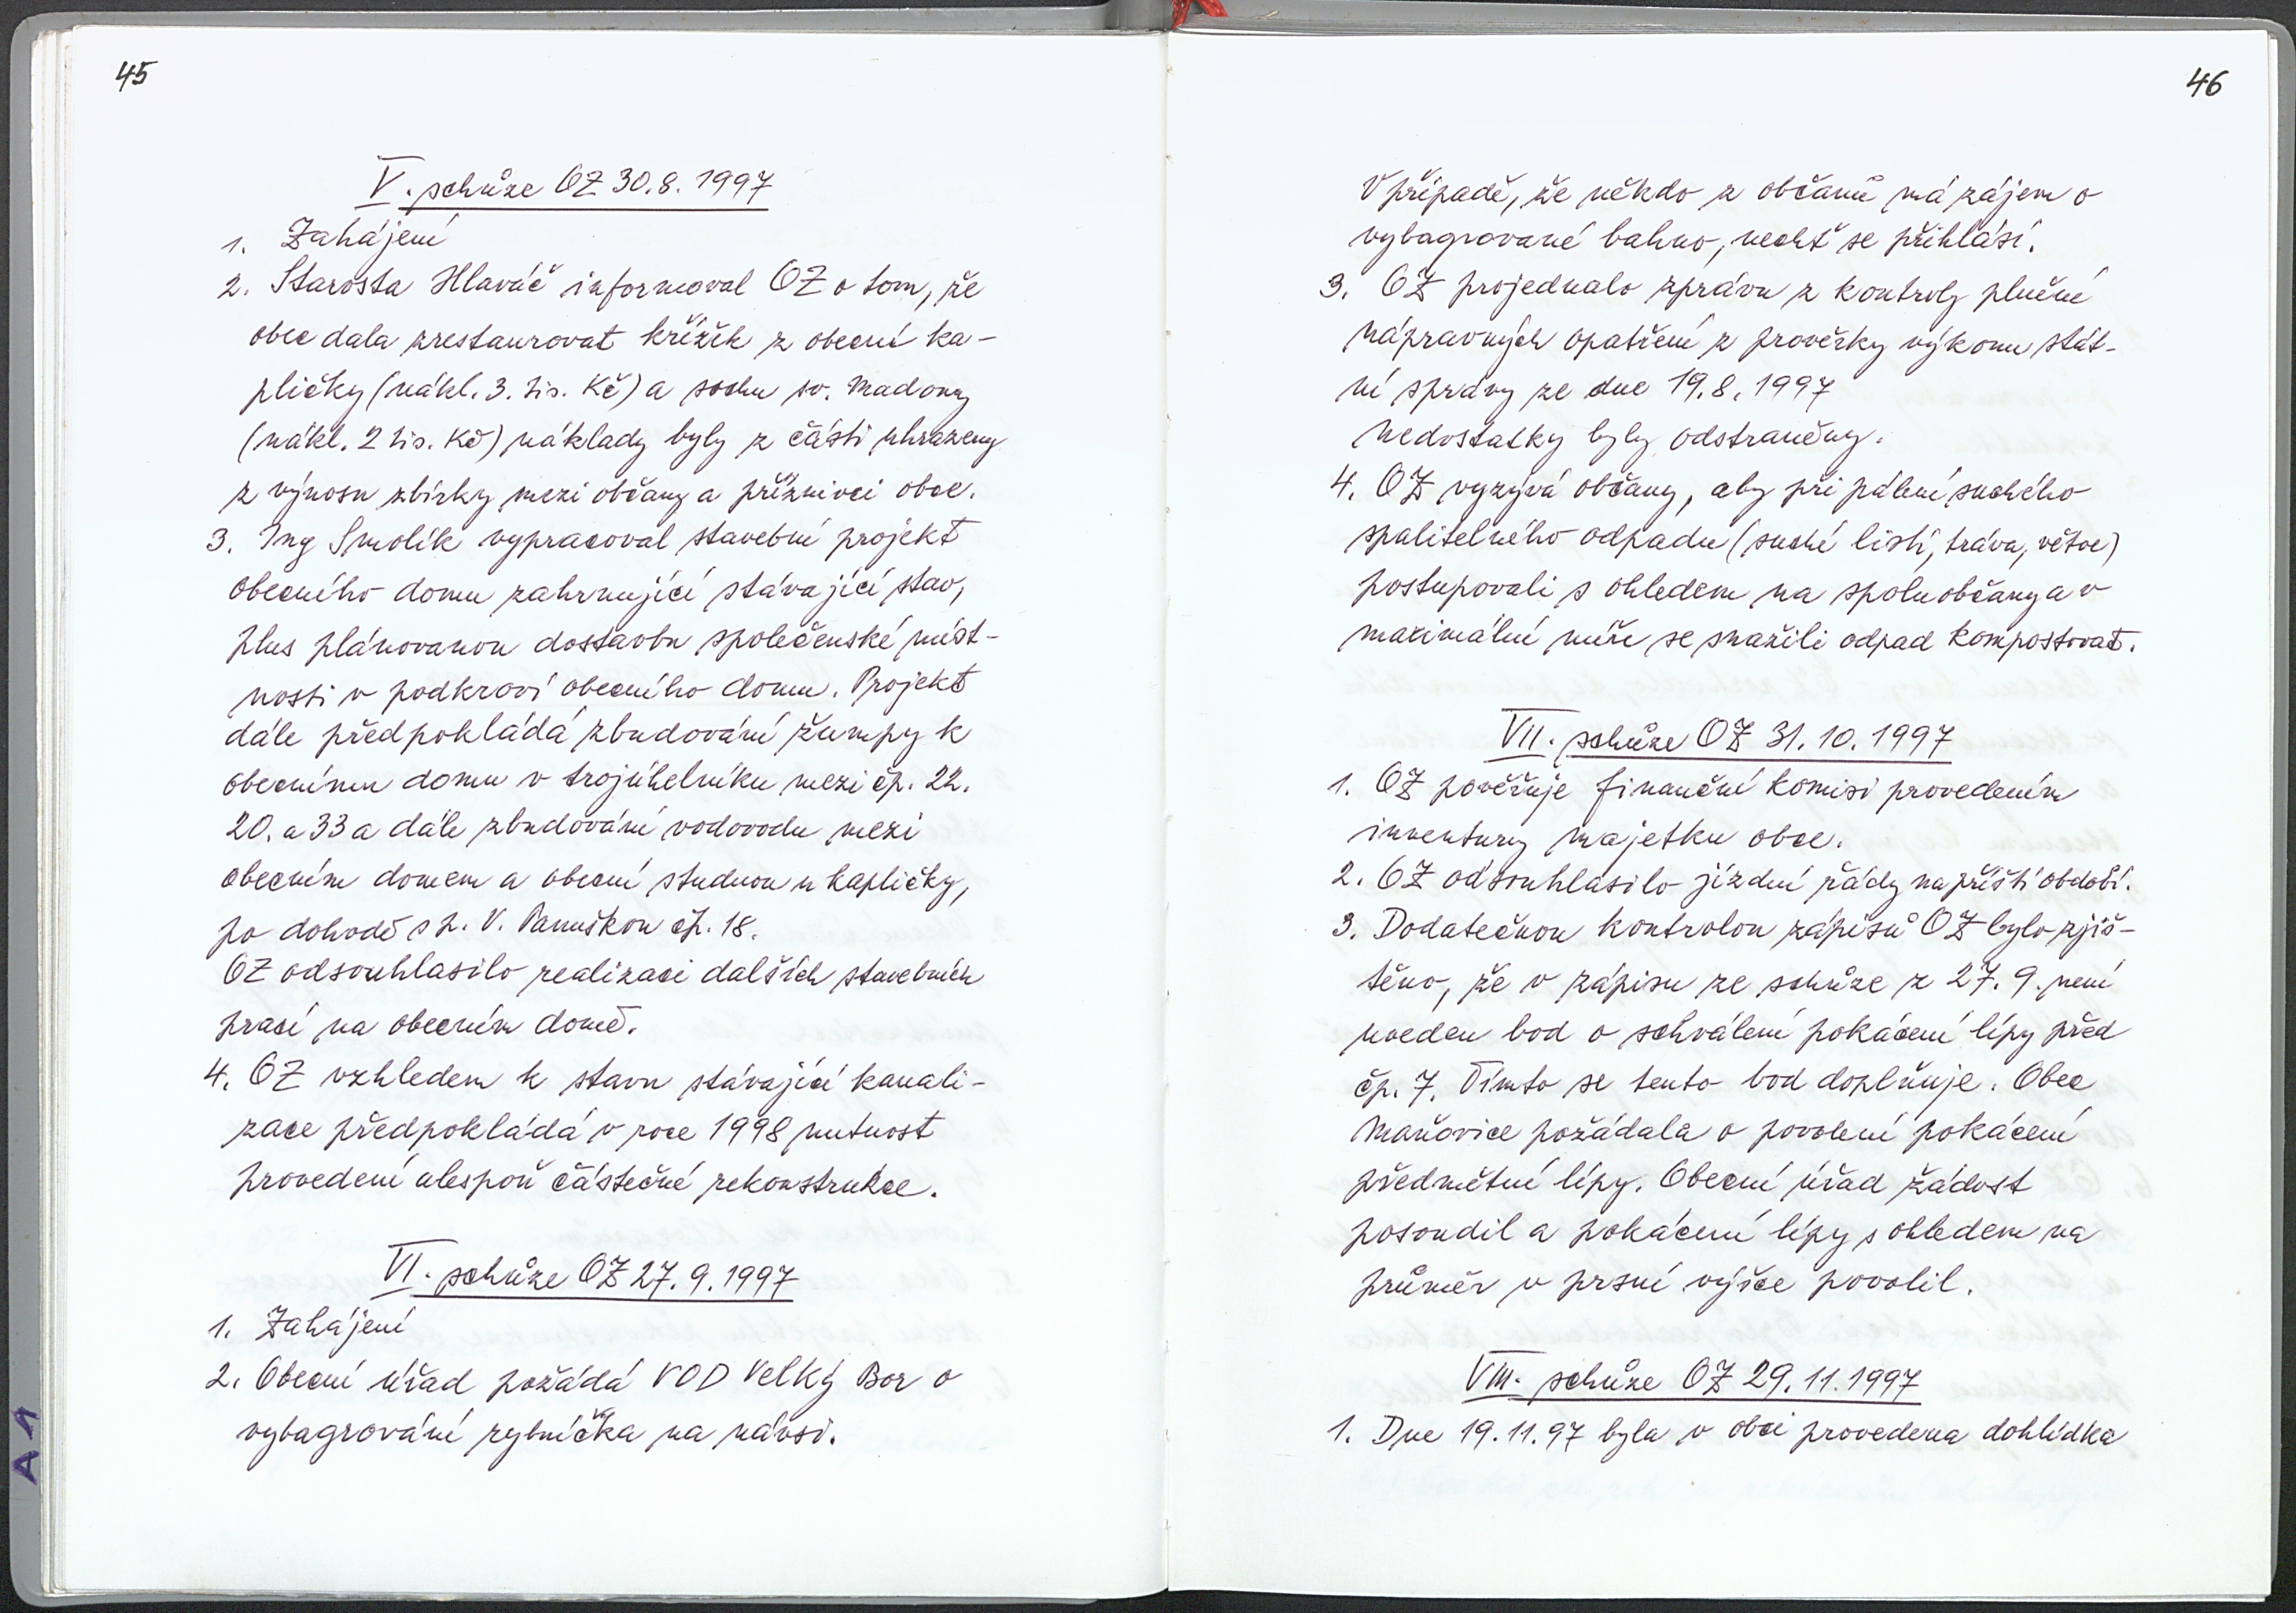 45
V. schůze OZ 30.8.1997
1. Zahájení
2. Starosta Hlaváč informoval OZ o tom, že
obec dala zrestaurovat křížek z obecní ka-
pličky (nákl. 3. tis. Kč) a sochu sv. Madony
(nákl. 2 tis. Kč) náklady byly z části uhrazeny
z výnosu zbírky mezi občany a příznivci obce.
3. Ing Smolík vypracoval stavební projekt
obecního domu zahrnující stávající stav,
plus plánovanou dostavbu společenské míst-
nosti v podkroví obecního domu. Projekt
dále předpokládá zbudování žumpy k
obecnímu domu v trojúhelníku mezi čp. 22.
20. a 33 a dále zbudování vodovodu mezi
obecním domem a obecní studnou u kapličky,
po dohodě s p. V. Panuškou čp. 18.
OZ odsouhlasilo realizaci dalších stavebních
prací na obecním domě.
4. OZ vzhledem k stavu stávající kanali-
zace předpokládá v roce 1998 nutnost
provedení alespoň částečné rekonstrukce.
VI. schůze OZ 27.9.1997
1. Zahájení
2. Obecní úřad požádá VOD Velký Bor o
vybagrování rybníčka na návsi.
46
V případě, že někdo z občanů má zájem o
vybagrované bahno, nechť se přihlásí.
3. OZ projednalo zprávu z kontroly plnění
nápravných opatření z prověrky výkonu stát-
ní správy ze dne 19.8.1997
Nedostatky byly odstraněny.
4. OZ vyzývá občany, aby při pálení suchého
spalitelného odpadu (suché listí, tráva, větve)
postupovali s ohledem na spoluobčany a v
maximální míře se snažili odpad kompostovat.
VII. schůze OZ 31.10.1997
1. OZ pověřuje finanční komisi provedením
inventury majetku obce.
2. OZ odsouhlasilo jízdní řády na příští období.
3. Dodatečnou kontrolou zápisů OZ bylo zjiš-
těno, že v zápisu ze schůze z 27.9. není
uveden bod o schválení pokácení lípy před
čp. 7. Tímto se tento bod doplňuje. Obec
Maňovice požádala o povolení pokácení
předmětné lípy. Obecní úřad žádost
posoudil a pokácení lípy s ohledem na
průměr v prsní výšce povolil.
VIII. schůze OZ 29.11.1997
1. Dne 19.11.97 byla v obci provedena dohlídka
A1